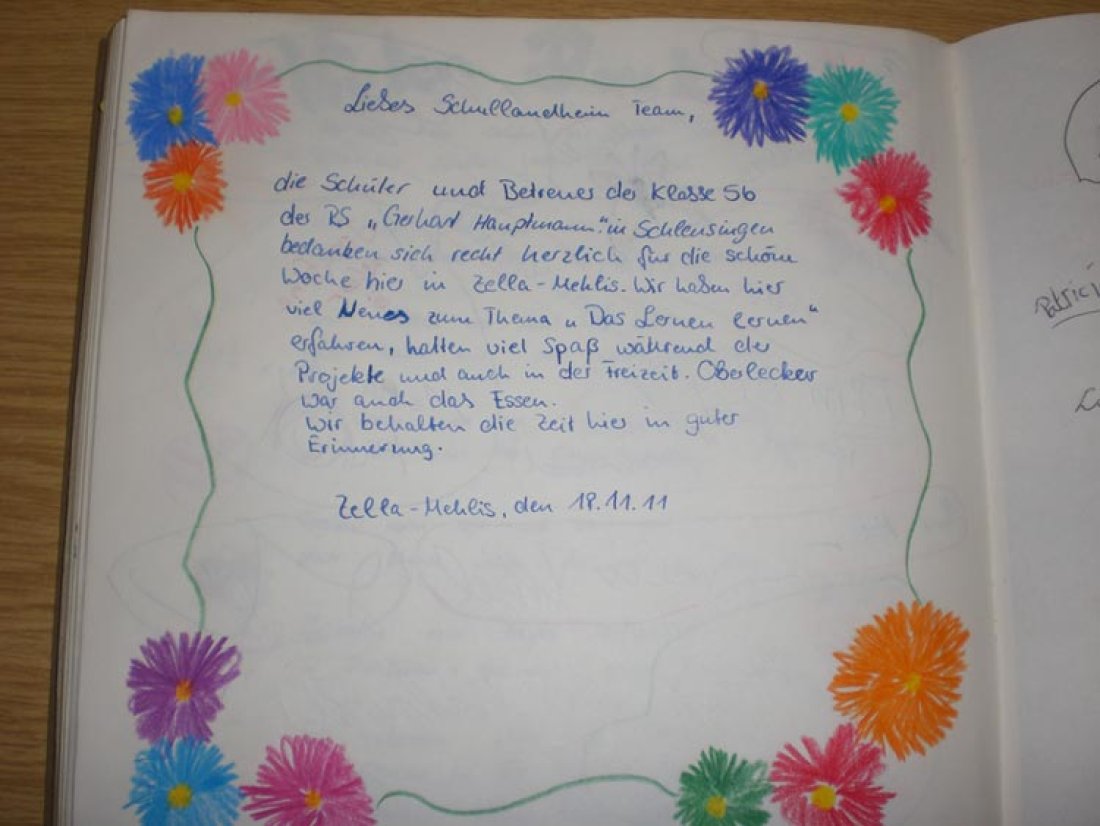 Liebes Schullandheim Team,
die Schüler und Betreuer der Klasse 5b
der RS „Gerhart Hauptmann" in Schleusingen
bedanken sich recht herzlich für die schöne
Woche hier in Zella-Mehlis. Wir haben hier
viel Neues zum Thema „Das Lernen lernen"
erfahren, hatten viel Spaß während der
Projekte und auch in der Freizeit. Oberlecker
war auch das Essen.
Wir behalten die Zeit hier in guter
Erinnerung.
Zella-Mehlis, den 18.11.11
Patrici